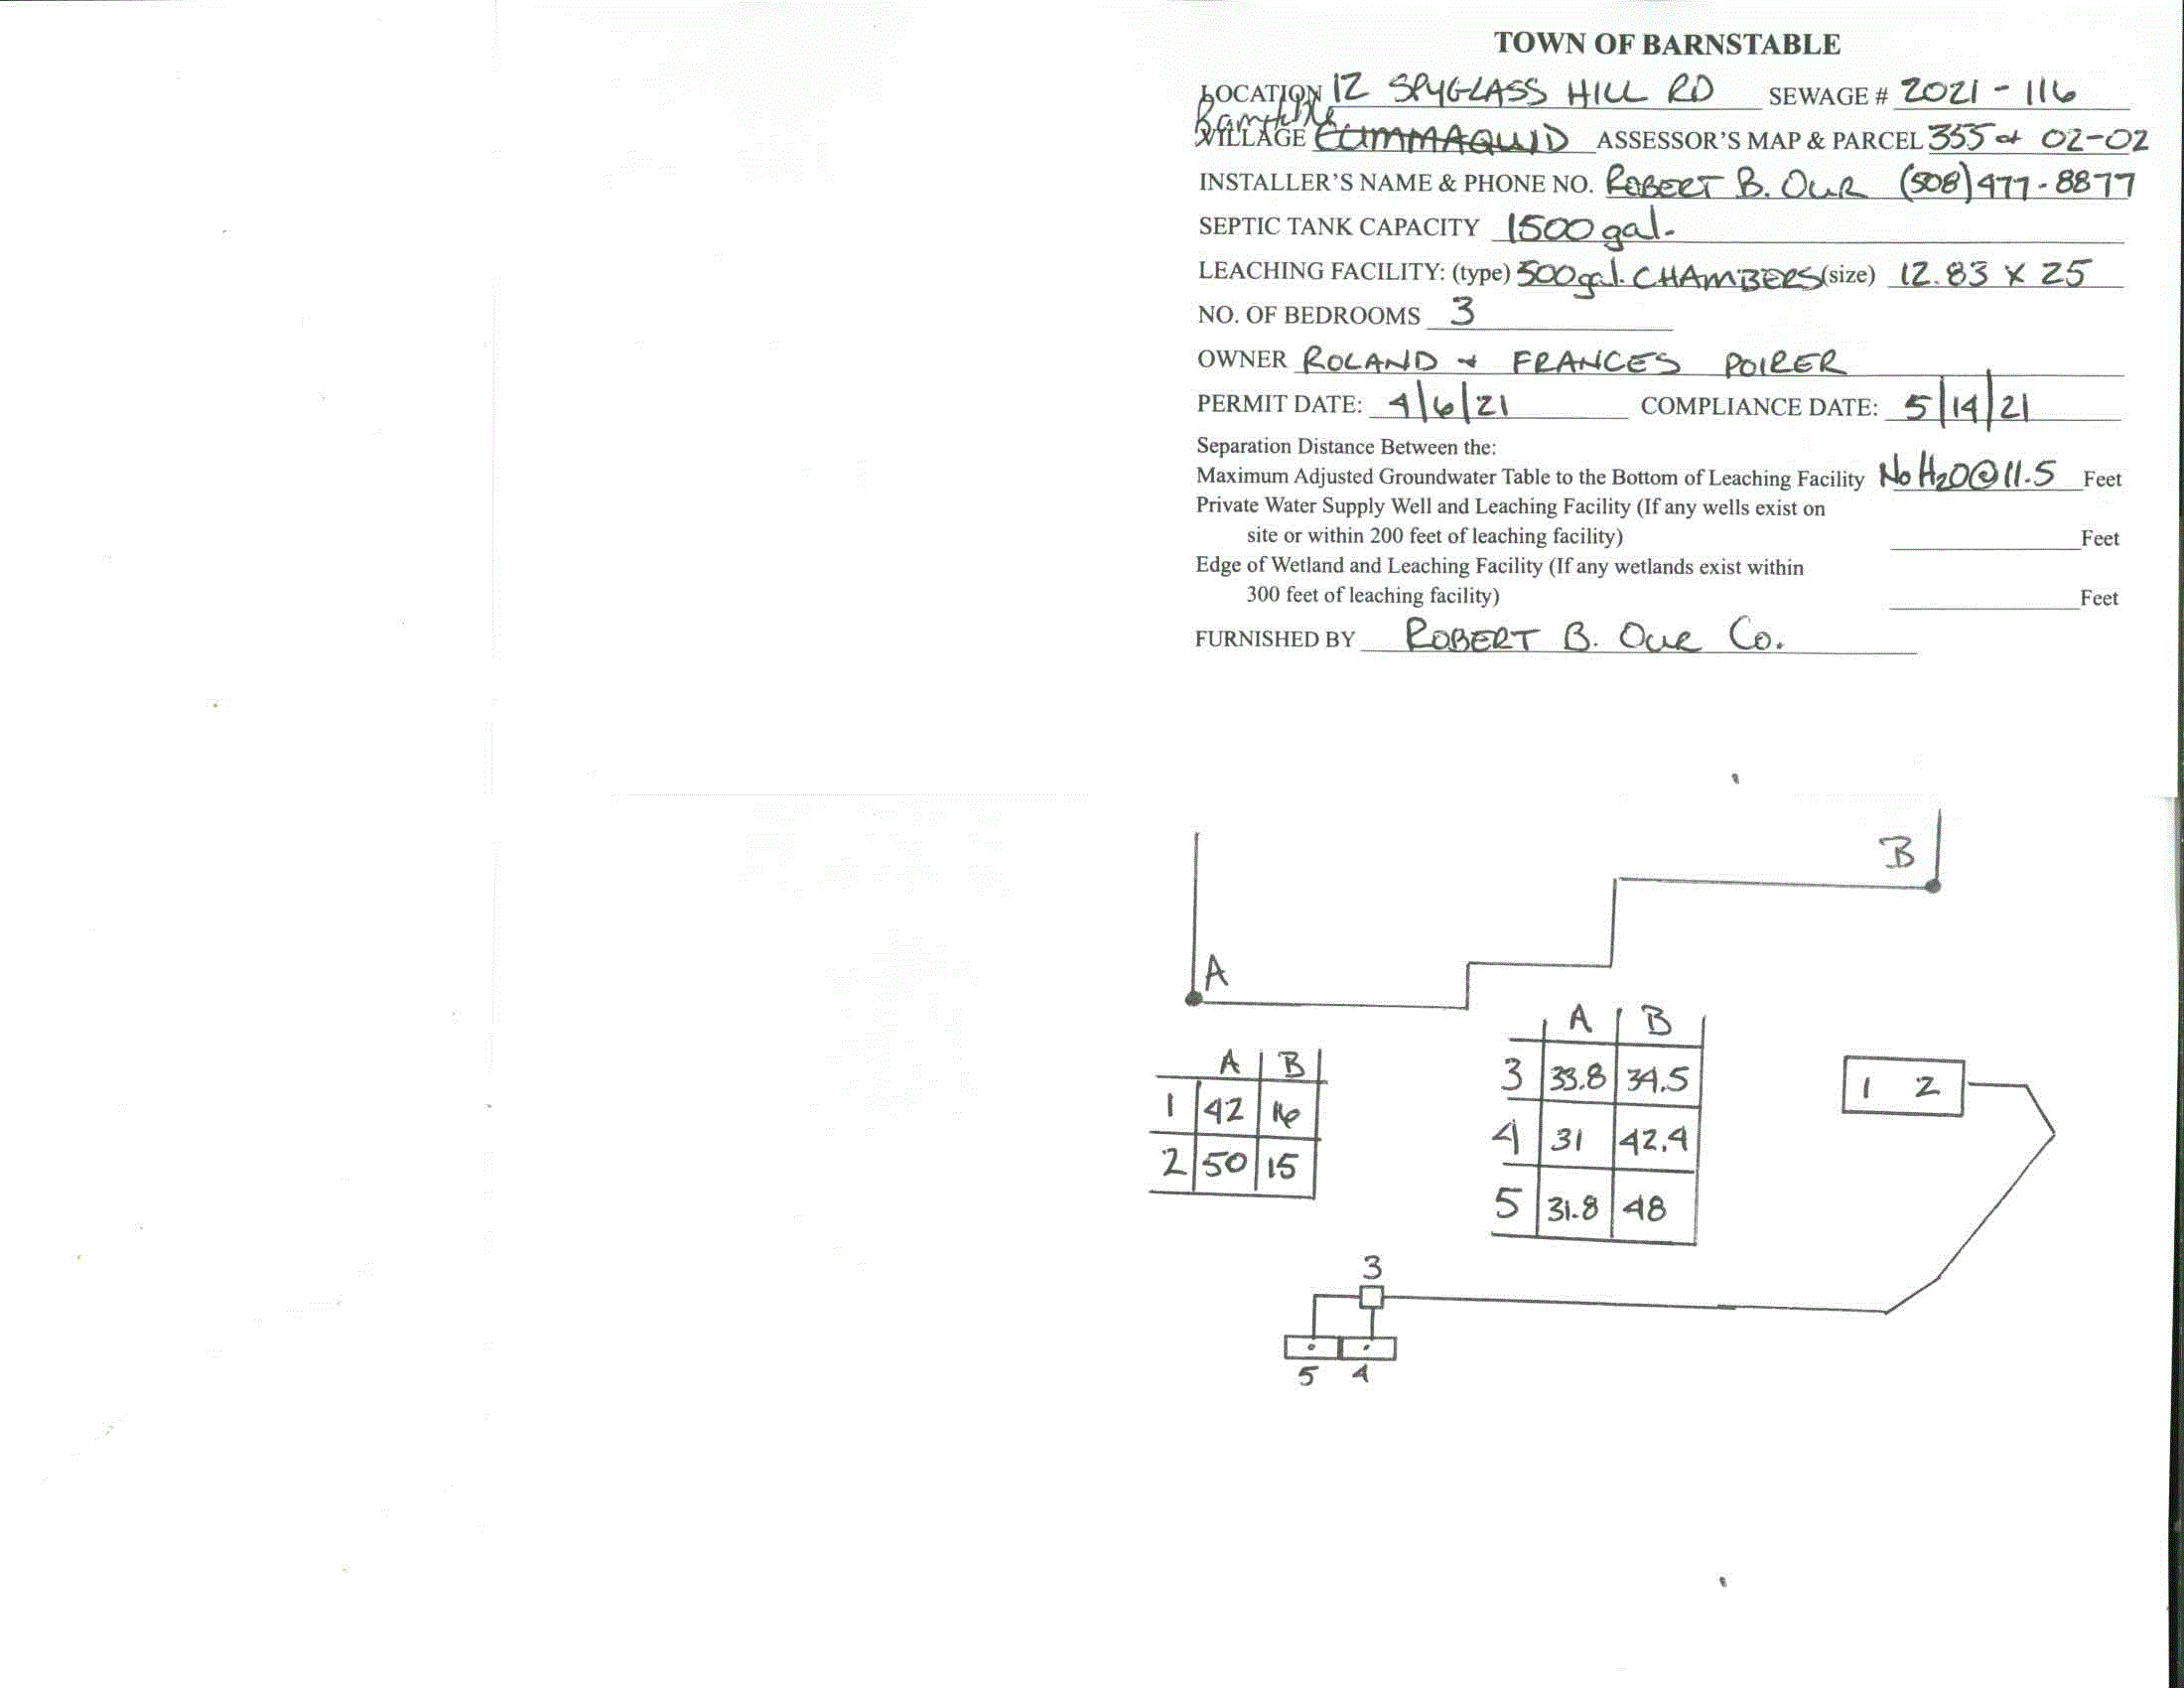 TOWN OF BARNSTABLE
LOCATION 12 SPYGLASS HILL RD SEWAGE # 2021-116
Barnstable
VILLAGE CUMMAQUID ASSESSOR'S MAP & PARCEL 355 02-02
INSTALLER'S NAME & PHONE NO. ROBERT B. OUR (508)477-8877
SEPTIC TANK CAPACITY 1500 gal.
LEACHING FACILITY: (type) 500 gal. CHAMBERS (size) 12.83 x 25
NO. OF BEDROOMS 3
OWNER ROLAND + FRANCES POIRER
PERMIT DATE: 4/6/21 COMPLIANCE DATE: 5/14/21
Separation Distance Between the:
Maximum Adjusted Groundwater Table to the Bottom of Leaching Facility No H2O@11.5 Feet
Private Water Supply Well and Leaching Facility (If any wells exist on
site or within 200 feet of leaching facility) Feet
Edge of Wetland and Leaching Facility (If any wetlands exist within
300 feet of leaching facility) Feet
FURNISHED BY ROBERT B. OUR Co.
B
A
A B
1 42 16
2 50 15
A B
3 33.8 34.5
4 31 42.4
5 31.8 48
1 2
3
5 4